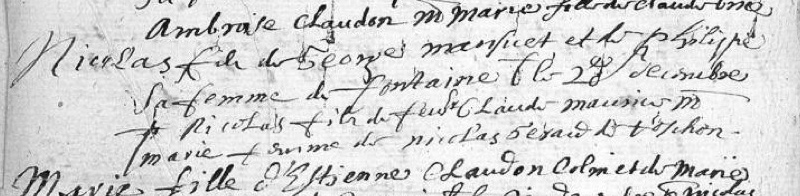 Ambroise Claudon m Marie fille de Claude
Nicolas fils de George mansuet et de Philippe
sa femme de fontaine b le 28 decembre
p Nicolas fils de feu Claude maurice m
marie femme de nicolas Geraud de
Marie fille d'Estienne Claudon Colin et de Marie
Nicolas